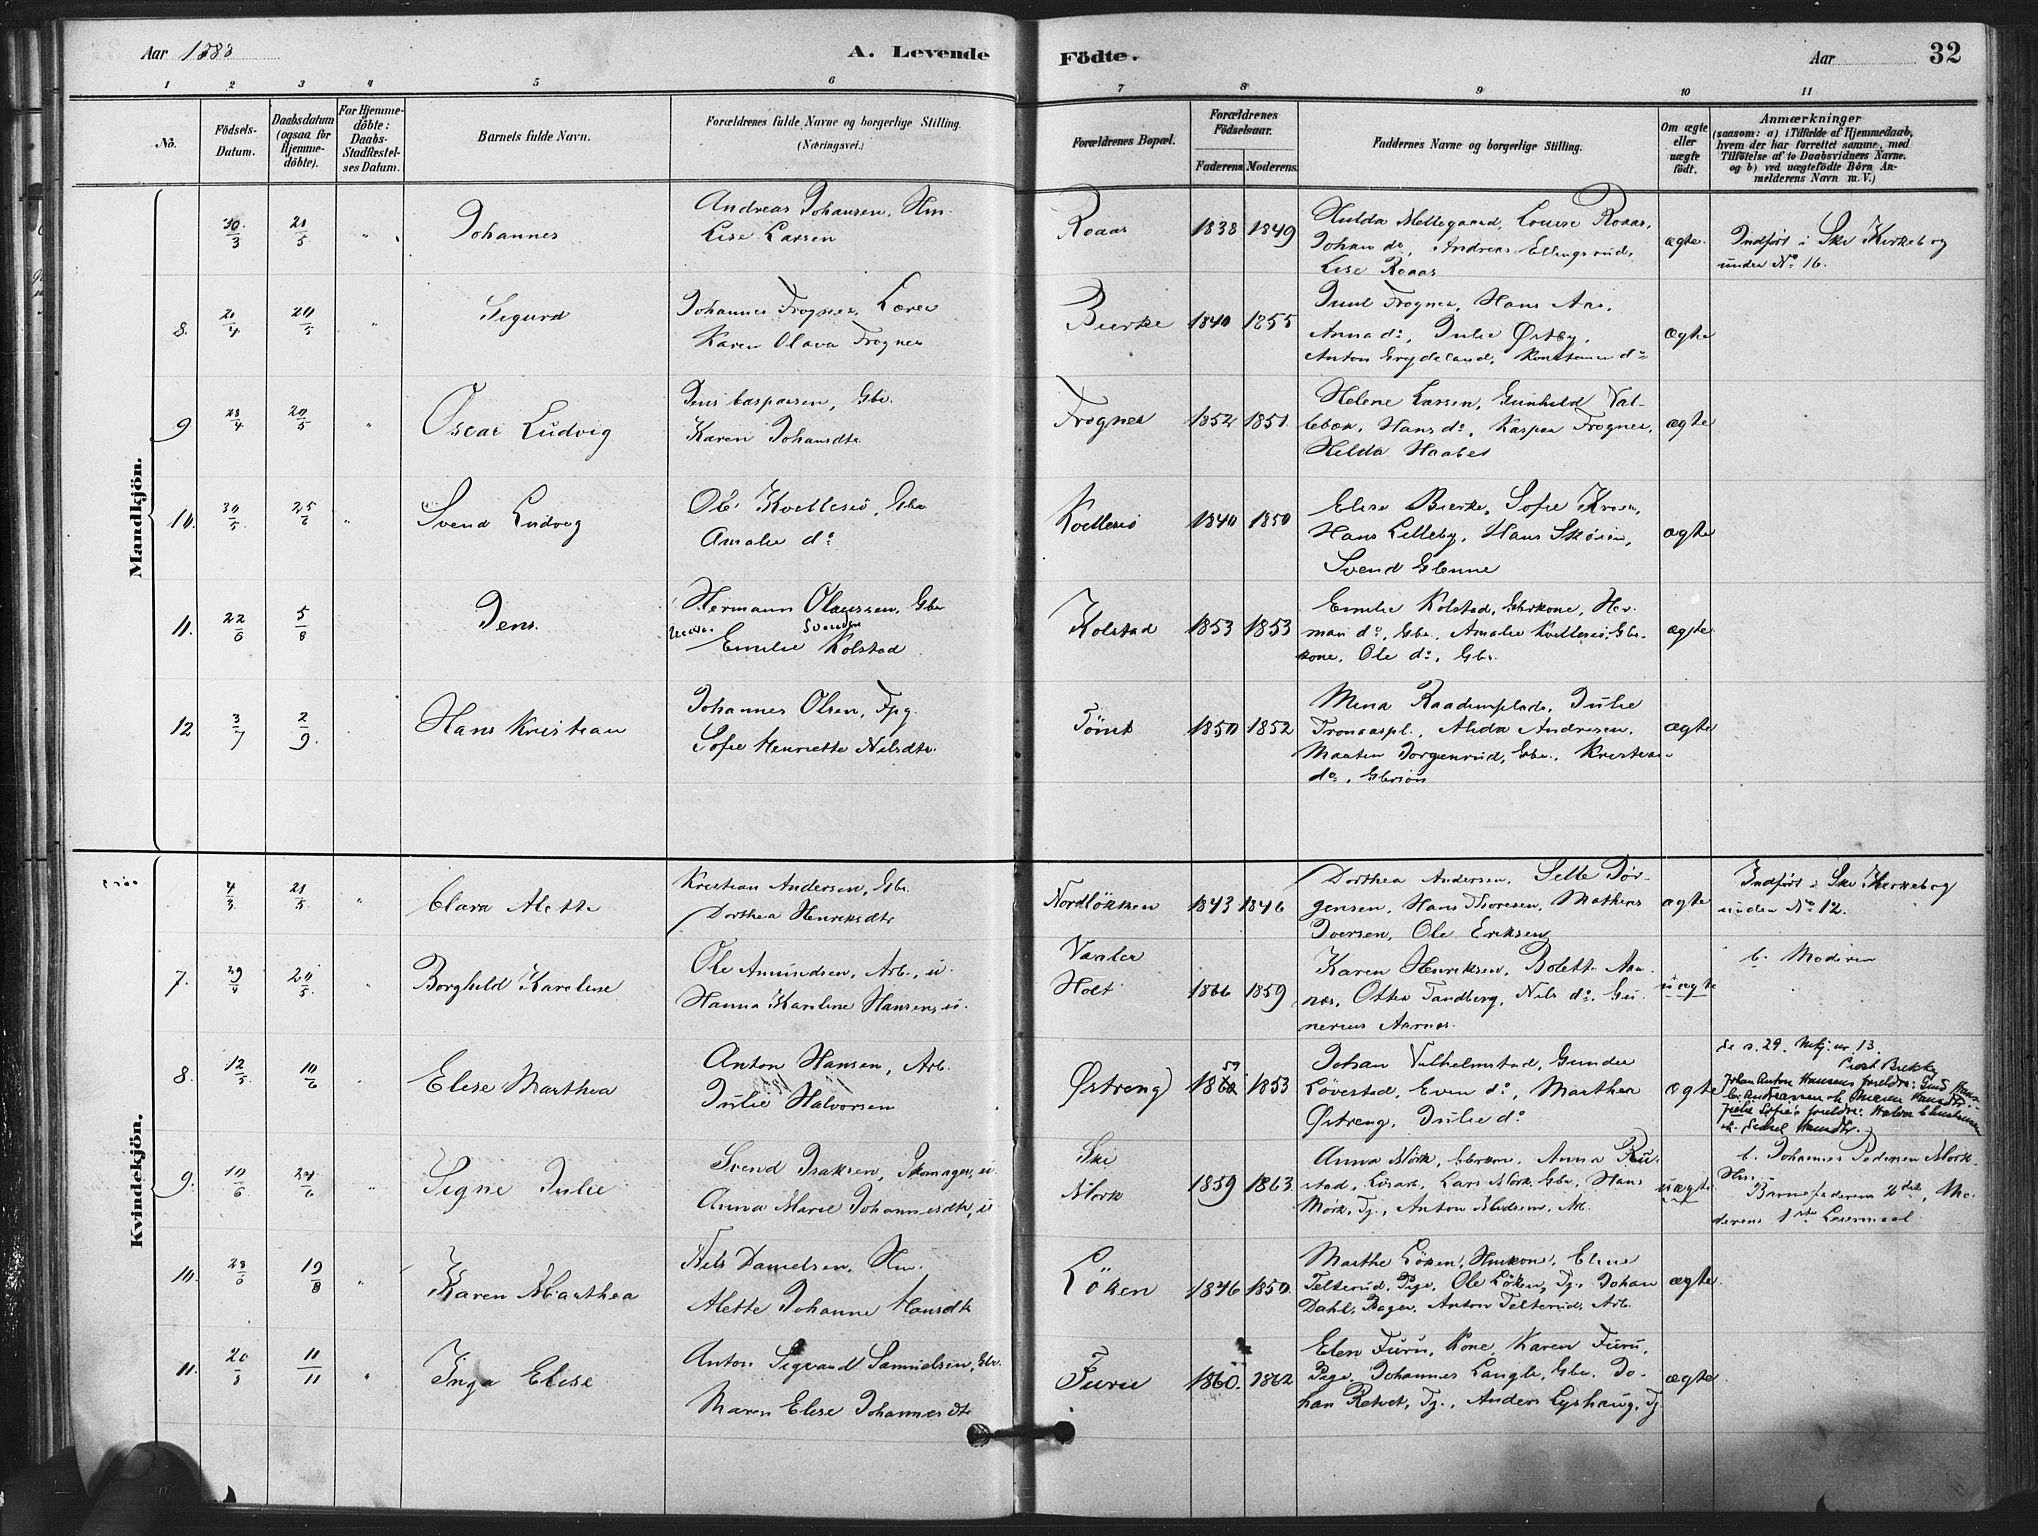 Aar 1883
A. Levende Födte.
Aar
32
1 2 3 4 5 6 7 8 9 10 11
No.
Födsels-
Datum.
Daabsdatum
(ogsaa for
Hjemme-
döbte).
For Hjemme-
döbte:
Daabs-
Stadfæstel-
ses Datum.
Barnets fulde Navn.
Forældrenes fulde Navne og borgerlige Stilling.
(Næringsvei.)
Forældrenes Bopæl.
Forældrenes
Födselsaar.
Faderens Moderens.
Faddernes Navne og borgerlige Stilling.
Om ægte
eller
uægte
födt.
Anmærkninger
(saasom: a) i Tilfælde af Hjemmedaab,
hvem der har forrettet samme, med
Tilföielse af to Daabsvidners Navne.
og b) ved uægtefödte Börn An-
melderens Navn m. V.)
Mandkjön.
30/3 21/5 " Johannes
Andreas Johansen, Hm.
Lise Larsen
Roaas 1838 1849
Hulda Mellegaard, Louise Roaas,
Johan do, Andreas Ellingsrud,
Lise Roaas
ægte.
Indført i Ski Kirkebog
under No 16.
8. 21/4 20/5 " Sigurd
Johannes Frogner, Lærer
Karen Olava Frogner
Bierke 1840 1855
Juul Frogner, Hans Aas,
Anna do, Julie Østby,
Anton Grydeland, do
ægte
9 28/4 20/5 " Oscar Ludvig
Jens Caspersen, Gbr.
Karen Johansdtr
Frogner 1852 1851.
Helene Larsen, Gunhild Val-
lebæk, Hans do, Kaspar Frogner,
Hilda Haabet
ægte
10. 30/5 25/6 " Svend Ludvig
Ole Kvellesiö, Gbr
Amalie do
Kvellesiö 1840 1850
Elise Bierke, Sofie
Hans Lilleby, Hans Skøien,
Svend Glenne
ægte
11. 22/6 5/8 Jens.
Hermann Olaussen, Gbr
Svendsn
Emilie Kolstad
Kolstad 1853 1853
Emilie Kolstad, Gbrkone, Her-
man do, Gbr. Amalie Kvellesiö, Gbr-
kone, Ole do, Gbr.
ægte
12 3/7 2/9. Hans Kristian
Johannes Olsen, Fpg.
Sofie Henriette Nilsdtr.
Tömt 1850 1852
Mina Raadimplads, Julie
Tronaaspl., Alida Andresen,
Martin Jorgenrud, Gbr., Kristian
do, Gbrsön
ægte
Kvindekjön.
4/3 21/5 " Clara Alette
Kristian Andersen, Gbr.
Dorthea Henriksdtr
Nordløkken 1843 1846
Dorthea Andersen, Jör-
gensen, Hans Thoresen, Mathias
Iversen, Ole Eriksen
ægte
Indført i Ski Kirkebog
under No 12.
7. 29/4 20/5. " Borghild Karoline
Ole Amundsen, Arb., u.
Hanna Karoline Hansen, u.
Vaaler
Holt 1866 1859
Karen Henriksen, Bolette Aar-
næs, Otter Tandberg, Nils do, Gu-
nerius Aarnæs.
uægte
b. Moderen
8. 12/5. 10/6 Elise Marthea
Anton Hansen, Arb.
Julie Halvorsen
Østreng 1860 59 1853
Johan Vilhelmstad, Gunder
Lövestad, Even do, Marthea
Østreng, Julie do
ægte
Se s. 29. Mkj. nr 13.
Johan Anton Hansens foreldre:
Julie Sofies foreldre: Halvor Christensen
9. 10/6 24/6 " Signe Julie
Svend Isaksen, Skomager, u.
Anna Marie Johannesdtr, u
Ski
Mørk 1859 1863
Anna Mørk, Gbrkon., Anna Ru-
stad, Lars Mörk, Gbr, Hans
Mörk, Tj., Anton Madsen, Arb.
uægte
b. Johannes Pedersen Mörk.
Hm.
Barnefaderens 2det, Mo-
derens 1ste Leiermaal
10. 23/6 19/8 " Karen Marthea
Nils Danielsen, Hm.
Alette Johanne Hansdtr
Löken 1846 1850.
Marthe Löken, Hmkone, Eline
Telterud, Pige, Ole Löken, Tj. Johan
Dahl, Bager, Anton Telterud, Arb.
ægte.
11. 20/8 11/11 " Inga Elise
Anton Sigvard Samuelsen, Gbr.
Maren Elise Johannesdtr
Furu 1860. 1862
Elen Furu, Kone, Karen Furu,
Pige, Johannes Langli, Gbr. Jo-
han Retvet, Tj., Anders Lyshaug, Tj.
ægte